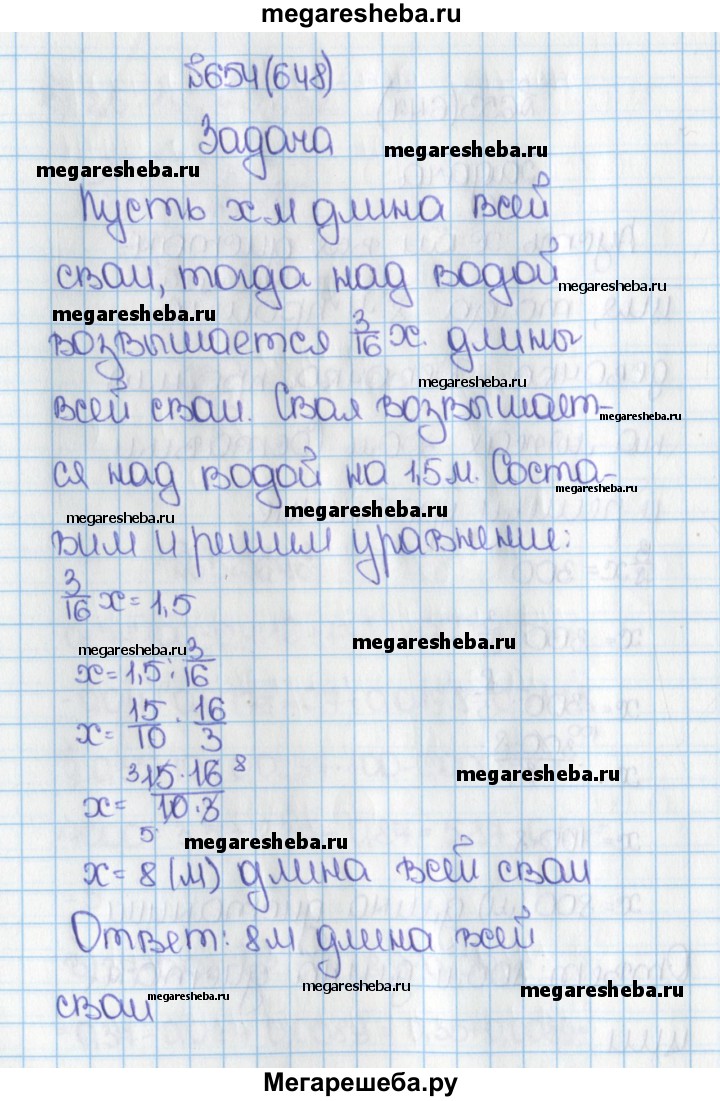 megaresheba.ru
№654(648)
Задача
megaresheba.ru
megaresheba.ru
Пусть х м длина всей
сваи, тогда над водой
megaresheba.ru
megaresheba.ru
возвышается 3/16 х. длины
megaresheba.ru
всей сваи. Свая возвышает-
megaresheba.ru
ся над водой на 1,5 м. Соста-
megaresheba.ru
megaresheba.ru
megaresheba.ru
вим и решим уравнение:
3/16 х = 1,5
megaresheba.ru
megaresheba.ru
х = 1,5 : 3/16
х = 15/10 · 16/3
megaresheba.ru
х = 3 15·16 8 / 10·3 5
megaresheba.ru
х = 8 (м) длина всей сваи
Ответ: 8 м длина всей
сваи
megaresheba.ru
megaresheba.ru
megaresheba.ru
Мегарешеба.ру